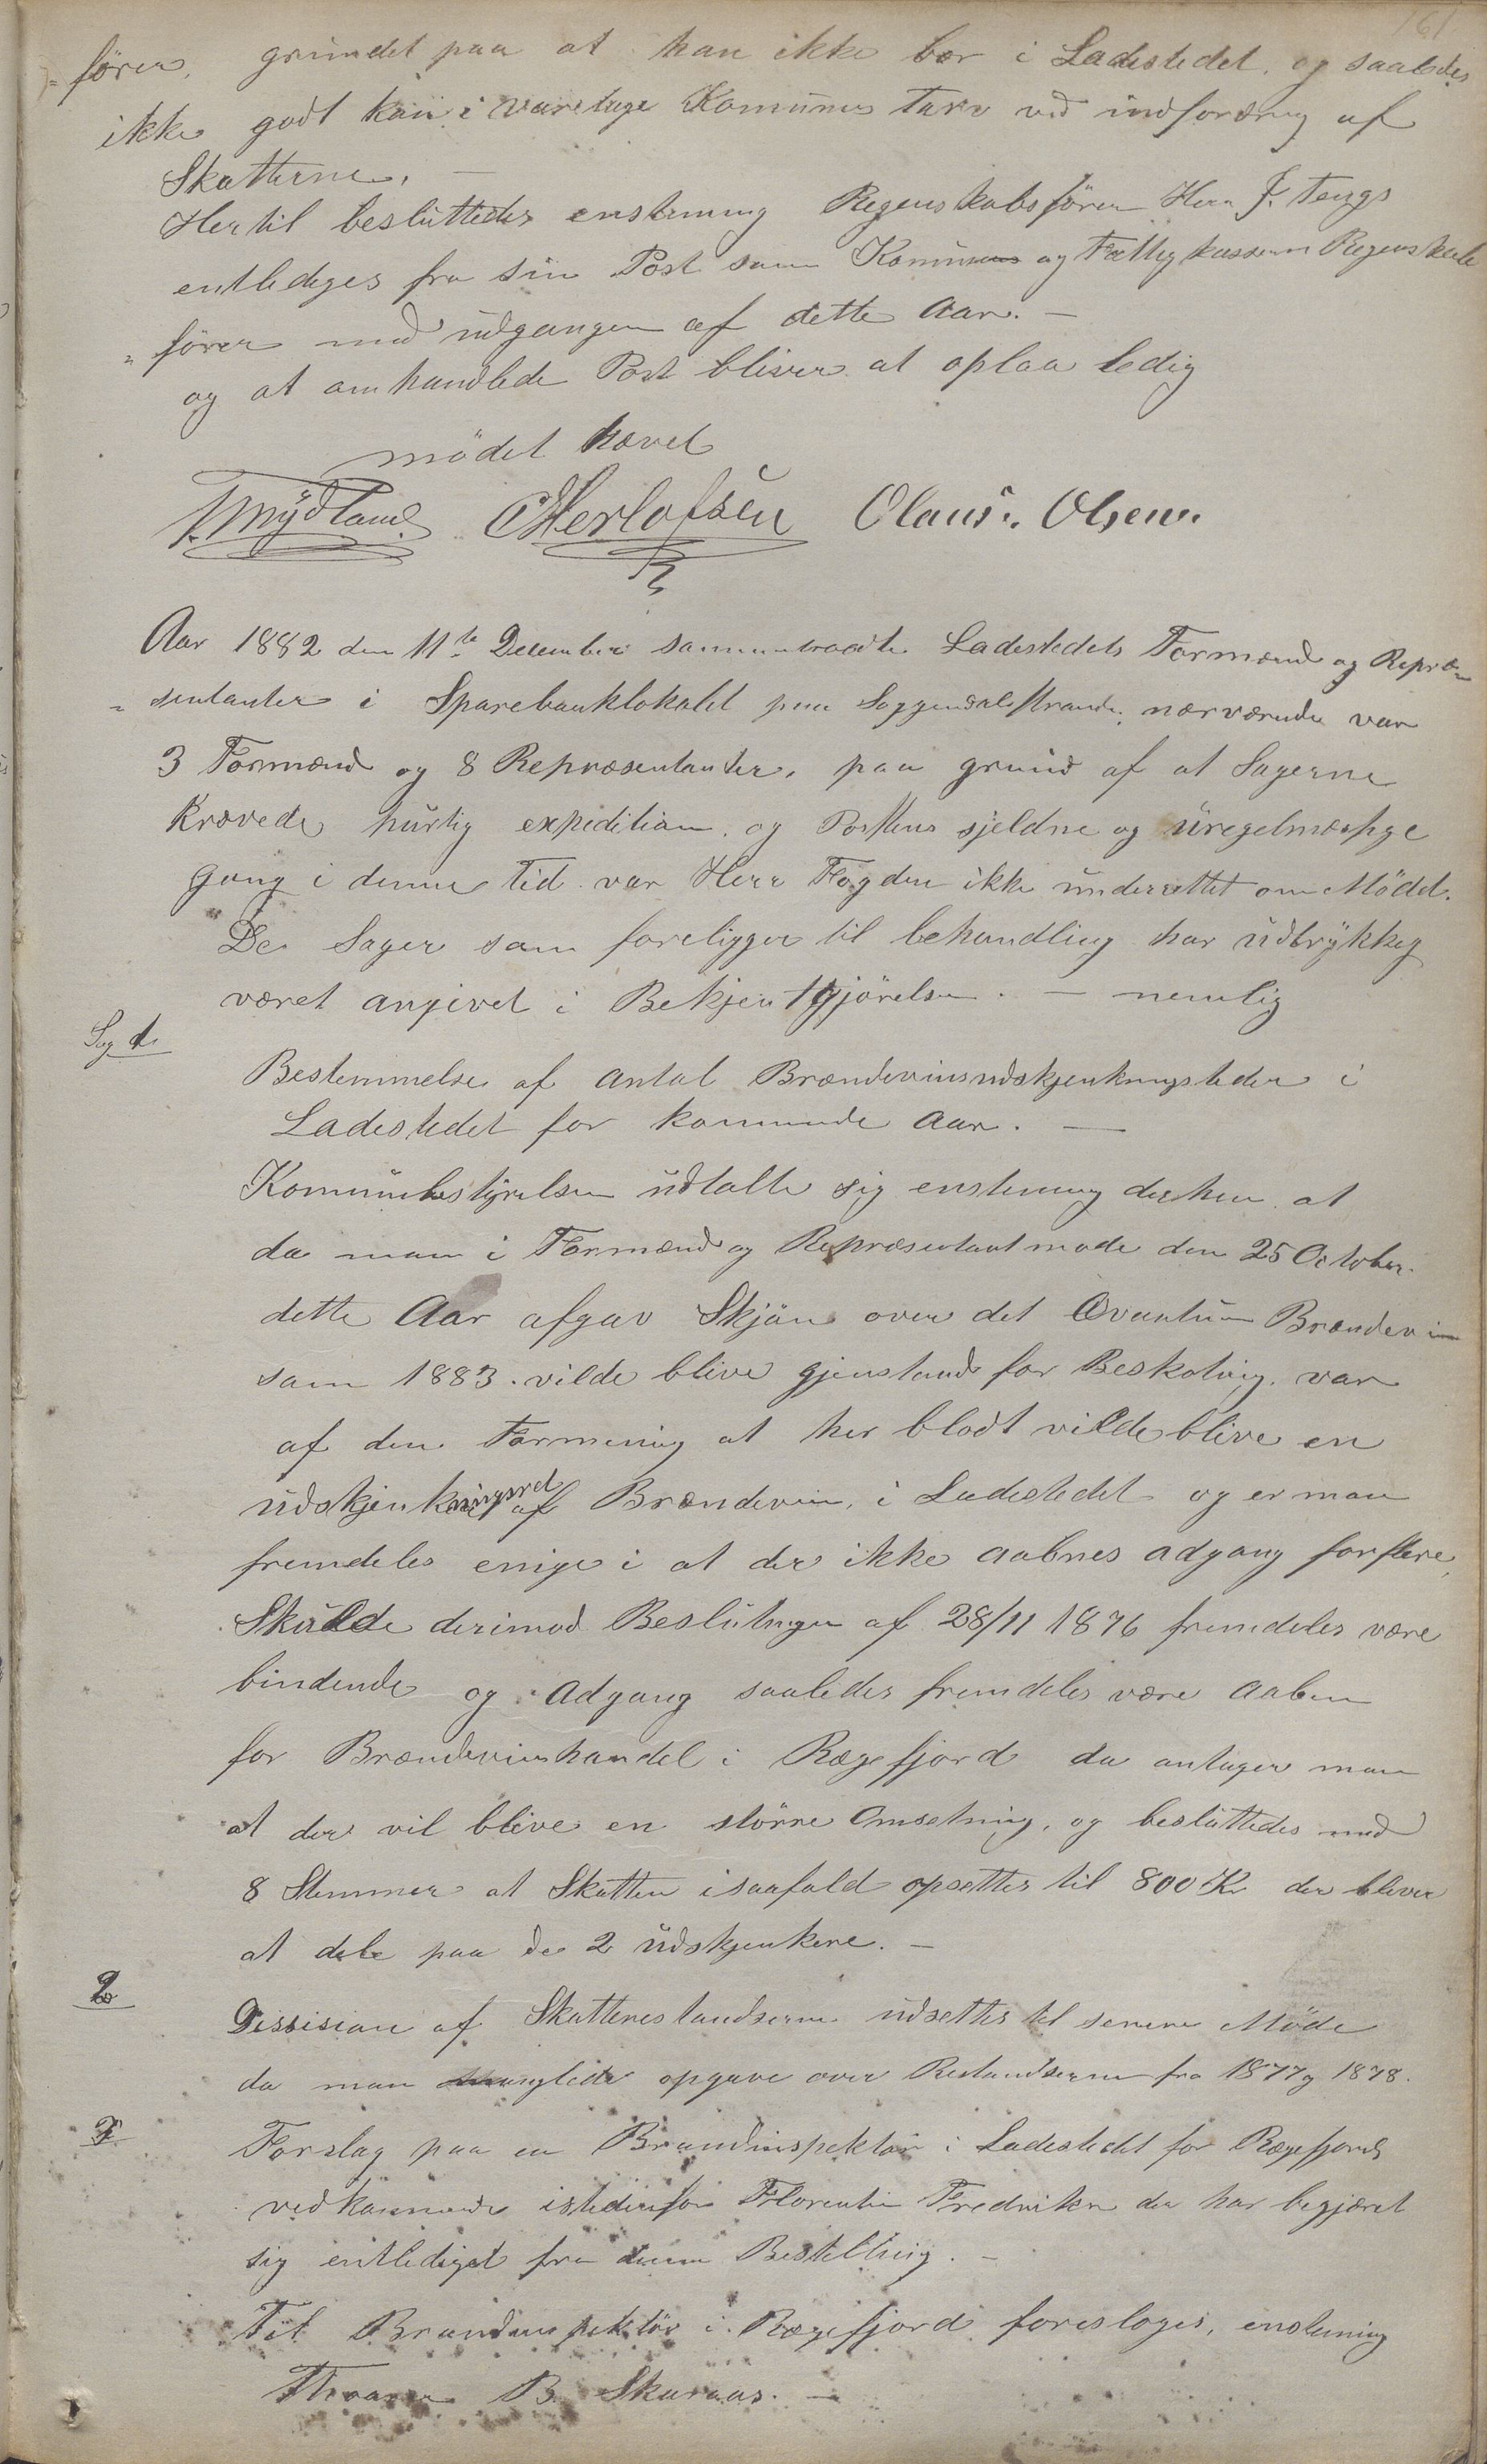 161
"fører, grundet paa at han ikke bor i Ladestedet, og saaledes
ikke godt kan i varetage Komunens Tarv ved indfordring af
Skatterne. —
Hertil besluttedes enstemmig Regenskabsfører Herr J. Tengs
entlediges fra sin Post som Komunens og Fattigkassens Regenskabs
"fører med udgangen af dette Aar. —
og at omhandlede Post bliver at oplaa ledig
mødet hævet
T. Mydland. C Herlofsen Olaus. Olsen.
Aar 1882 den 11te December sammentraadte Ladestedets Formænd og Repræ-
"sentanter i Sparebanklokalet paa Soggendalsstrand, nærværende var
3 Formænd og 8 Repræsentanter, paa grund af at Sagerne
krævede hurtig expedition, og Postens sjeldne og uregelmæssige
gang i denne Tid var Herr Fogden ikke underrettet om Mødet.
De Sager som foreligger til behandling har udtrykkeg
været angivet i Bekjentgjørelsen. — nemlig
Sag 1.
Bestemmelse af antal Brændevinsudskjenkningsteder i
Ladestedet for kommende Aar. —
Komunebestyrelsen udtalte sig enstemmig derhen at
da man i Formænd og Repræsentantmøde den 25 October
dette Aar afgav Skjøn over det Qvantum Brændevin
som 1883. vilde blive gjenstand for Beskatning, var
af den Formening at her blodt vilde blive en
udskjenkningsret af Brændevin, i Ladestedet og er man
fremdeles enige i at der ikke aabnes adgang for flere,
Skulde derimod Beslutningen af 28/11 1876 fremdeles være
bindende og Adgang saaledes fremdeles være aaben
for Brændevinshandel i Rægefjord da antager man
at der vil blive en större Omsetning, og besluttedes med
8 Stemmer at Skatten isaafald opsettes til 800 Kr der bliver
at dele paa de 2 udskjenkere. —
2
Dissision af Skatterestandserne udsettes til senere Møde
da man manglede opgave over Restandserne fra 1877 og 1878.
3
Forslag paa en Brandinspektør i Ladestedet for Rægefjords
vedkommende istedenfor Florentin Fredriksen der har begjæret
sig entlediget fra denne Bestelling. —
Til Brandinspektør i Rægefjord foresloges, enstemmig
B. Skaraas. —